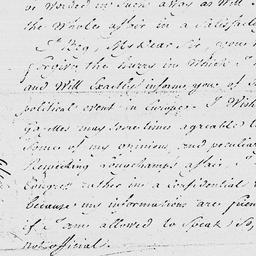 be worded in such a way as will
the whole affair in a satisfact
I Beg, My Dear Sir, you
forgive the hurry in which I
and Will Exactly inform you of
political event in Europe. I Wish
may some times agreable t
Some of my opinions and peculiar
Respecting Longchamps affair. I
Congress rather in a Confidential
because my informations are
if I am allowed to Speak So,
not official.